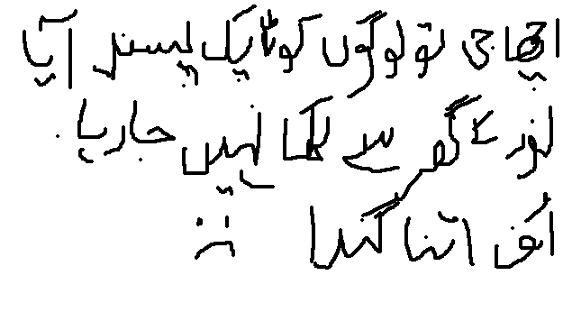 اچھا جی تو لوگوں کو ٹاپک پسند آیا
اور سے لکھا نہیں جا رہا
اف اتنا گندا :(